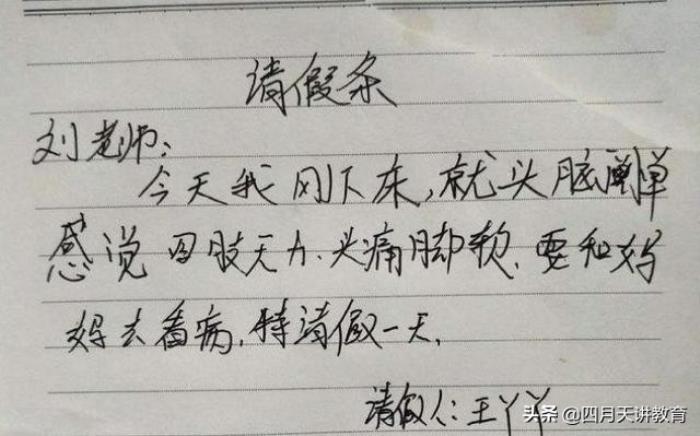 请假条
刘老师:
今天我刚下床,就头脑
感觉四肢无力、头痛脚软,要和妈
妈去看病,特请假一天,
请假人:王丫丫
头条 @四月天讲教育